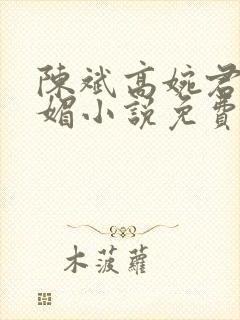 陳斌高婉君
媚小說免費
木菠蘿